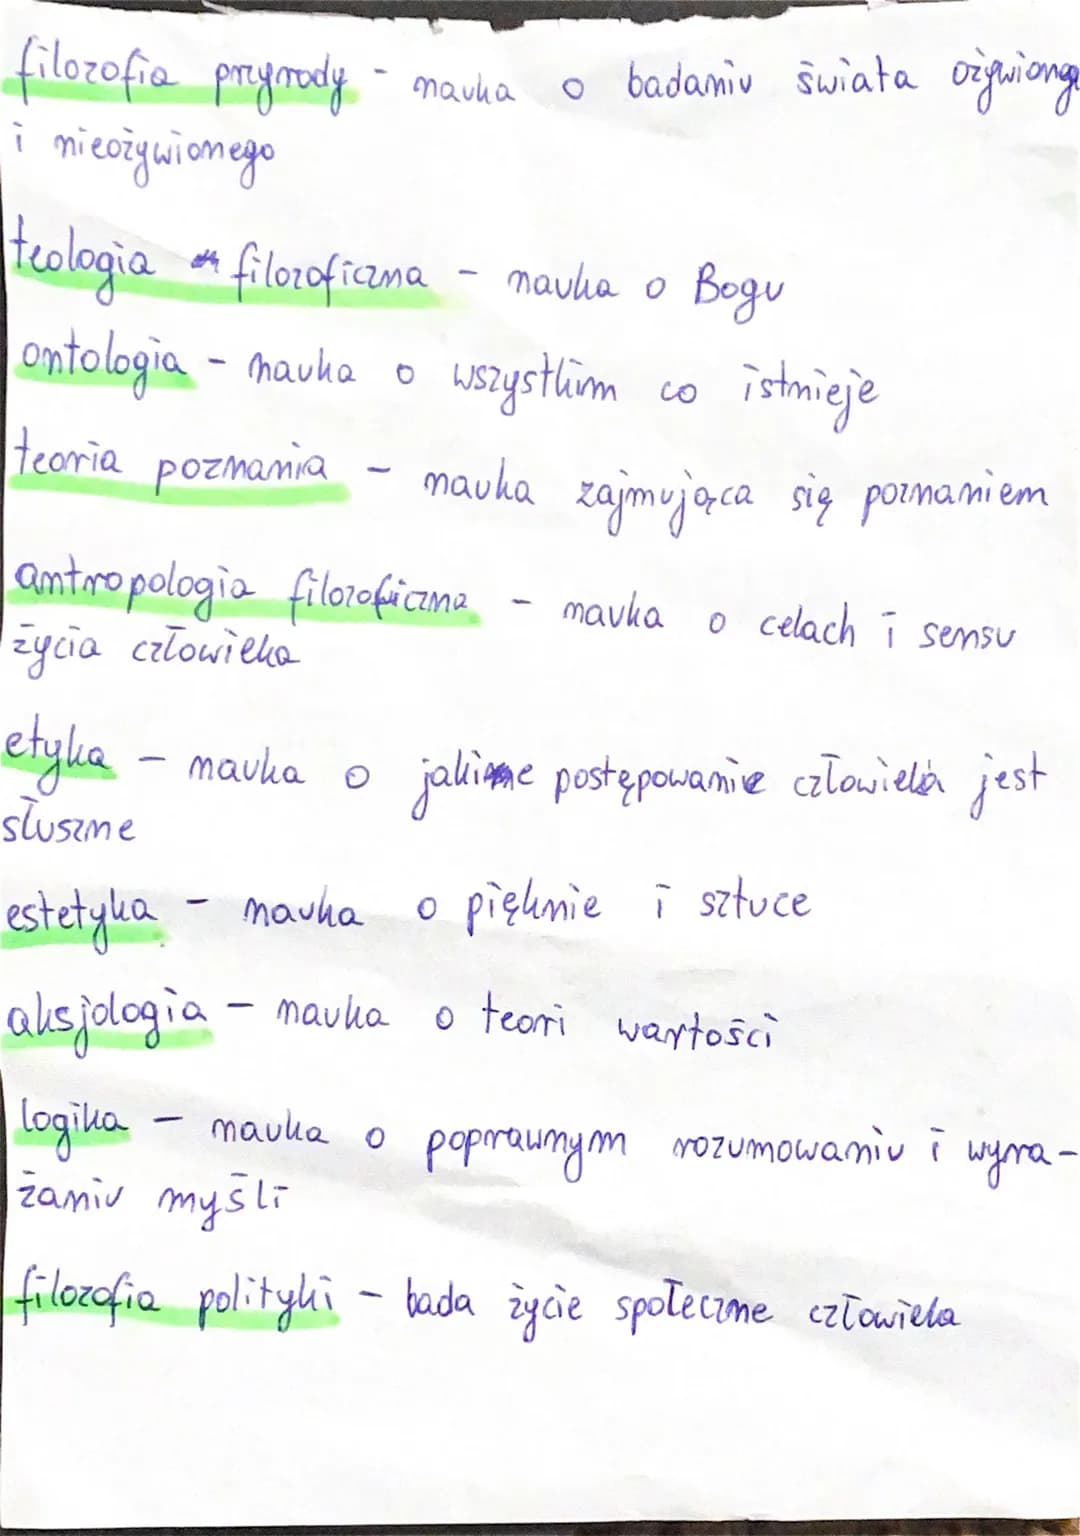 filozofia przyrody - nauka o badaniu świata ożywiong
i nieożywionego
teologia filozoficzna - nauka o Bogu
ontologia - nauka o wszystkim co istnieje
teoria poznania - nauka zajmująca się poznaniem
antropologia filozoficzna - nauka o celach i sensu
życia człowieka
etyka - nauka o jakie postępowanie człowieka jest
słuszne
estetyka - nauka o pięknie i sztuce
aksjologia - nauka o teori wartości
logika - nauka o poprawnym rozumowaniu i wyra-
żaniu myśli
filozofia polityki - bada życie społeczne człowieka